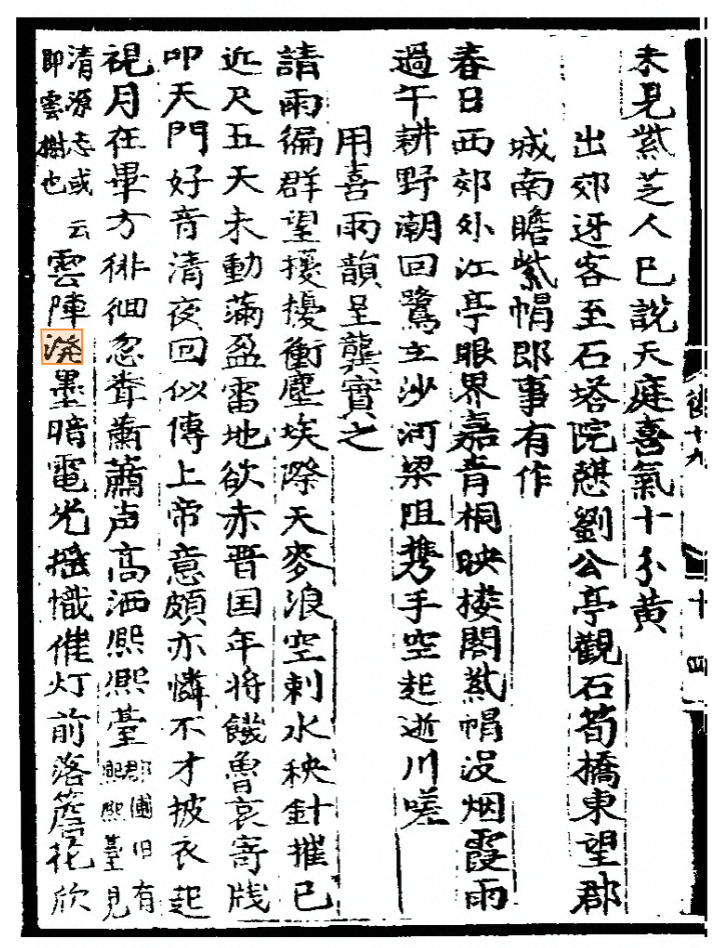 未見紫芝人已說天庭喜氣十分黃
出郊迓客至石塔院憇劉公亭觀石筍橋東望郡
城南瞻紫帽即事有作
春日西郊外江亭眼界嘉青桐映楼閣紫帽没烟霞雨
過午耕野潮回鷺立沙河梁阻携手空起逝川嗟
用喜雨韻呈龔實之
請雨徧群望擾擾衝塵埃際天麥浪空刺水秧針摧已
近尺五天未動滿盈雷地欲赤晋国年将饑魯哀寄牋
叩天門好音清夜回似傳上帝意頗亦憐不才披衣起
視月在畢方徘徊忽聾蕭蕭声高洒熙熙臺郡圃旧有熙熙臺見
清源志或云即雲樹也雲陣潑墨暗電光摇幟催灯前落簷花欣
後十九
二十四